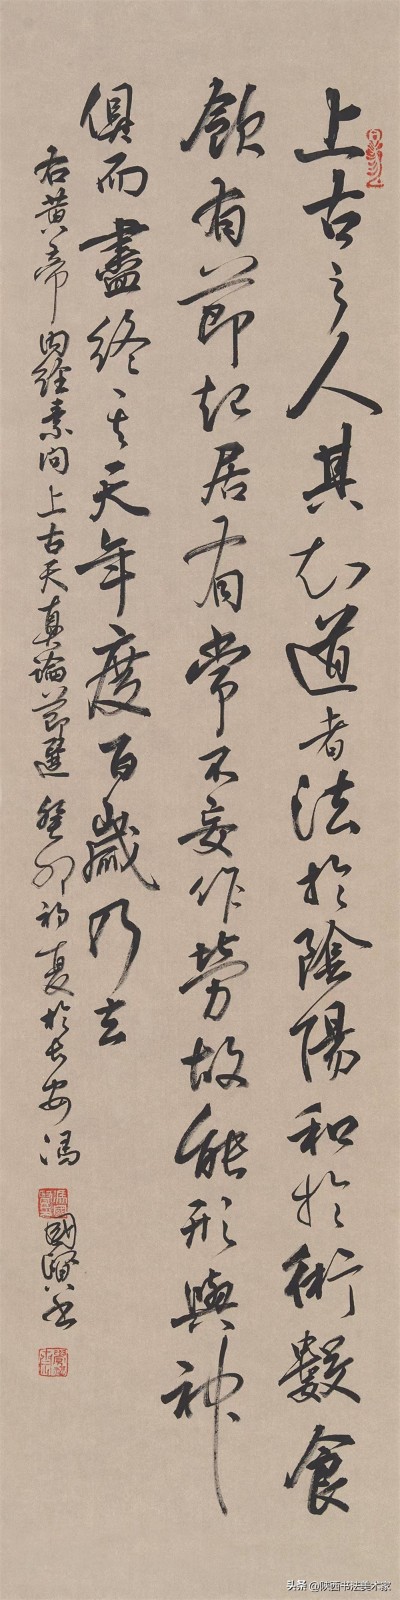 上古之人其知道者法於陰陽和於術數食
飲有節起居有常不妄作勞故能形與神
俱而盡終其天年度百歲乃去
右黃帝內經素問上古天真論節選癸卯初夏於長安馮
國賢書
头条@陕西书法美术家